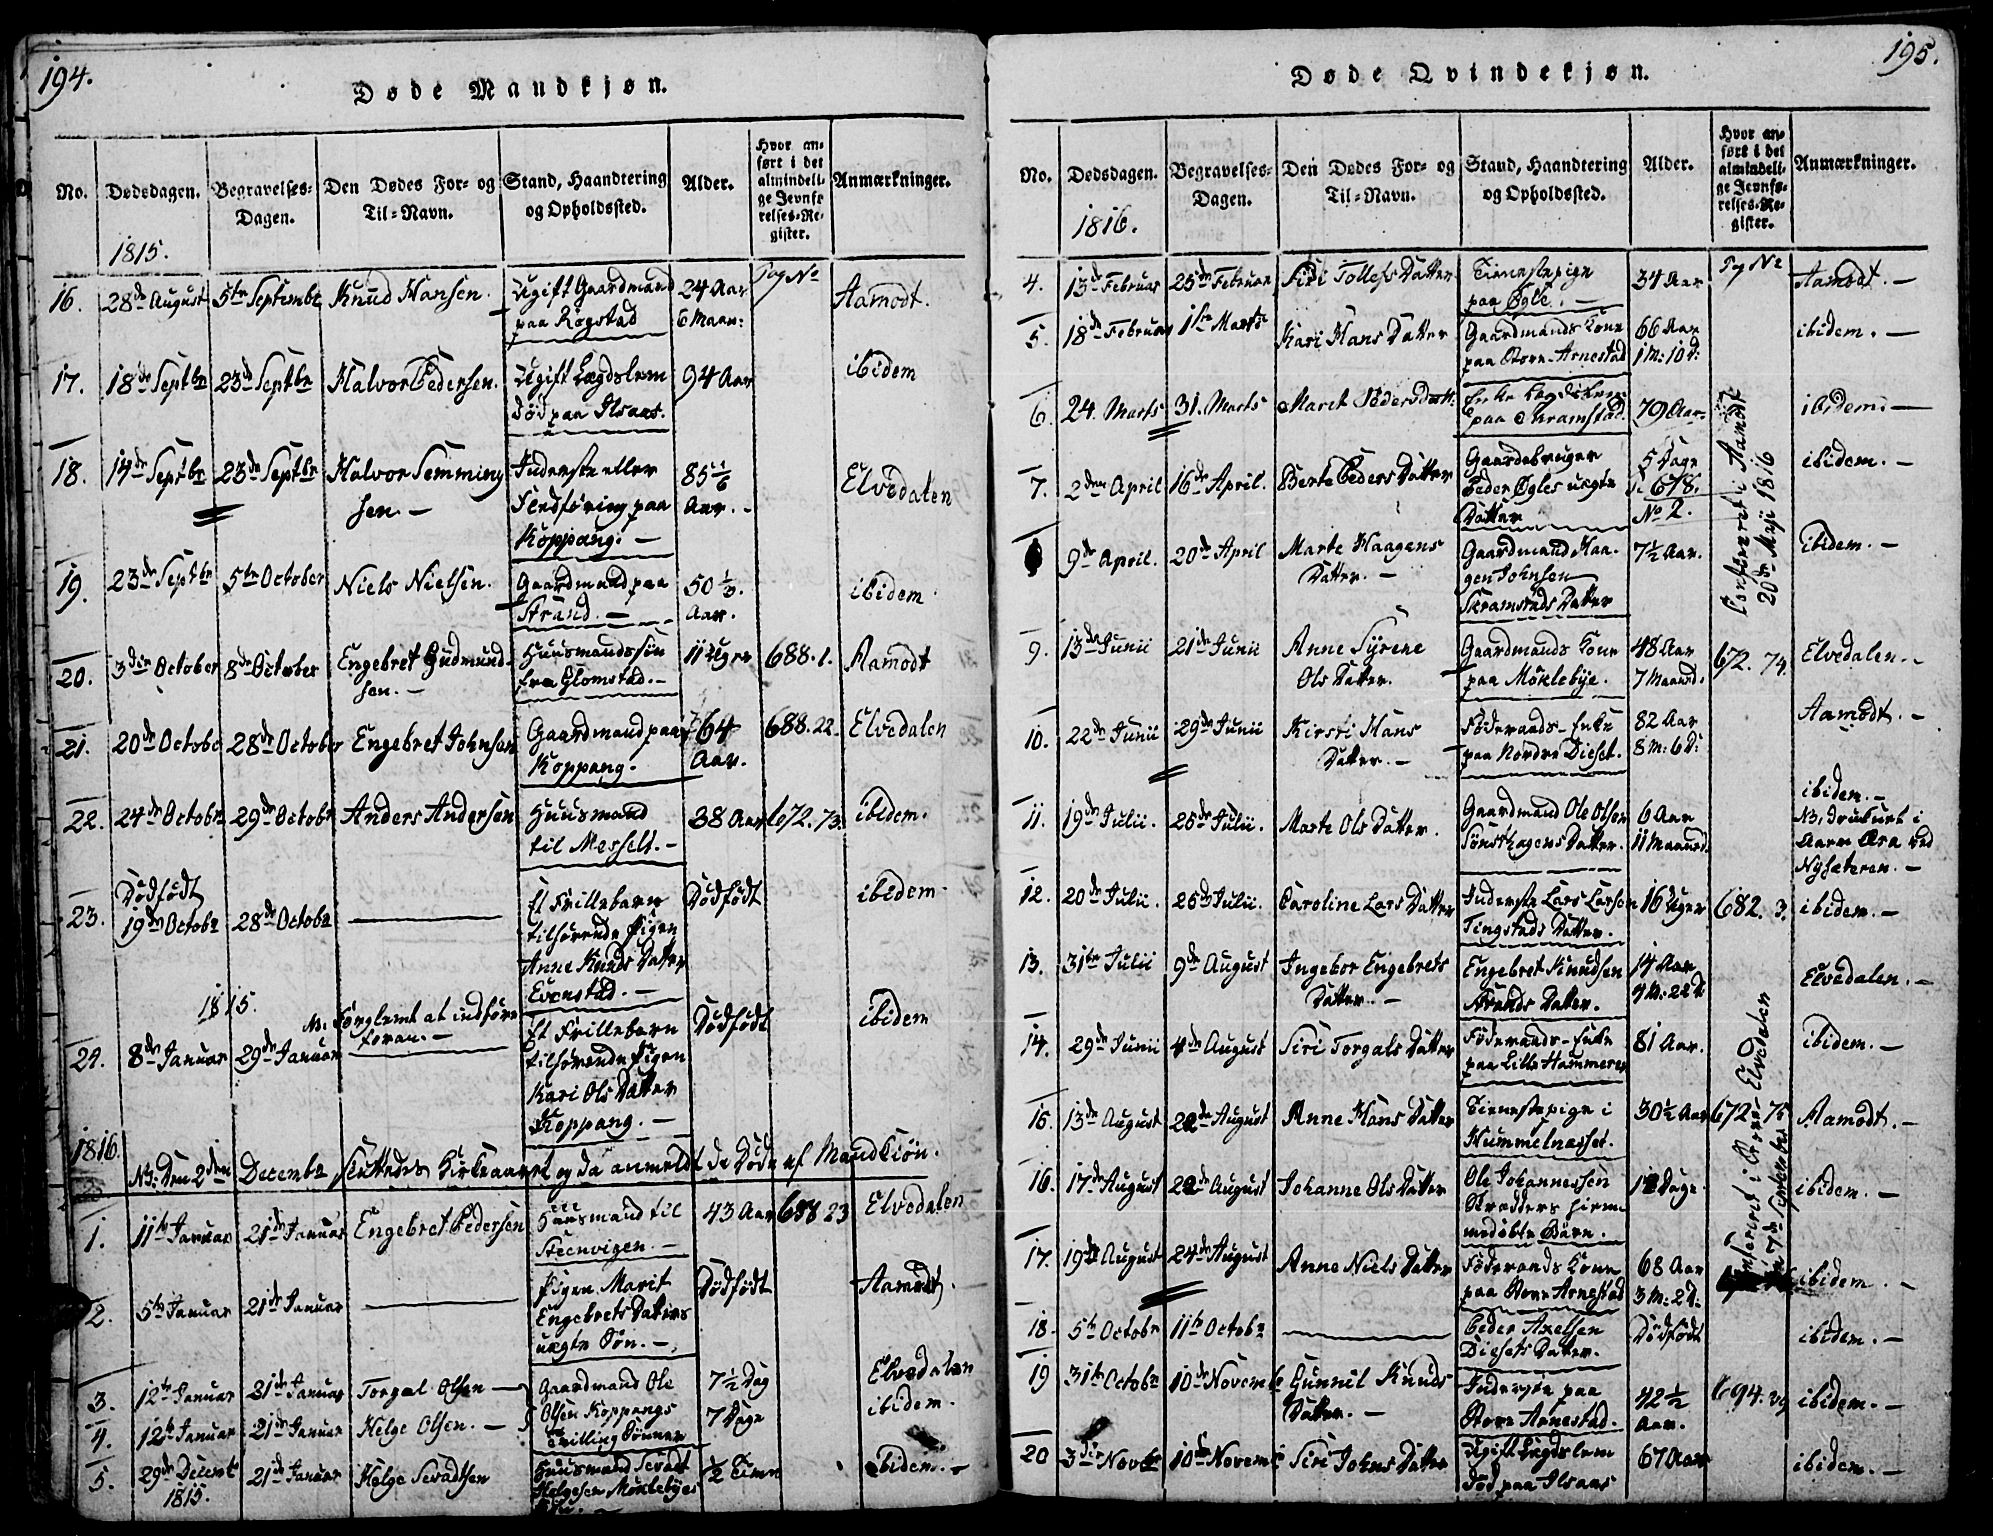 194.
Døde Mandkjøn.
No. Dødsdagen. Begravelses-Dagen. Den Dødes For- og Til-Navn. Stand, Haandtering og Opholdssted. Alder. Hvor anført i det almindelige Jevnførelses-Register. Anmærkninger.
1815.
Pag No
16. 28de August 5te Septembr Knud Hansen. Ugift Gaardmand paa Rogstad 24 Aar 6 Maan: Aamodt.
17. 18de Septbr 23de Septbr Halvor Pedersen. Ugift Lægdslem død paa Ilsaas. 94 Aar ibidem
18. 14de Septbr 23de Septbr Halvor Semmingsen. Inderste eller paa Koppang. 85 1/6 Aar. Elvedalen
19. 23de Septbr 5te October Niels Nielsen. Gaardmand paa Strand. 50 1/3. Aar. ibidem.
20. 3die October 8de October Engebret Gudmundsen. Huusmandssøn fra Glomstad. 11 Uger 688. 1. Aamodt
21. 20de Octobr 28de October Engebret Johnsen Gaardmand paa Koppang. 64 Aar. 688. 22. Elvedalen
22. 24de Octobr 29de Octobr Anders Andersen Huusmand til Messelt. 38 Aar 672. 73. ibidem.
23. Dødfødt 19de Octobr 28de Octobr Et Frillebarn tilhørende Pigen Anne Knuds Datter Evenstad. Dødfødt ibidem
1815.
24. 8de Januar 29de Januar NB. Forglemt at indføre foran. Et Frillebarn tilhørende Pigen Kari Ols Datter Koppang. Dødfødt ibidem
1816.
NB: Den 2den Decembr sluttedes Kirkeaaret og da anmeldt de Døde af Mandkiøn.
1. 11te Januar 21de Januar Engebret Pedersen Huusmand til Steenvigen. 43 Aar 688 23 Elvedalen
2. 5te Januar 21de Januar Pigen Marit Engebrets Datters uægte Søn. Dødfødt Aamodt.
3. 12te Januar 21de Januar Torgal Olsen Gaardmand Ole Olsen Koppangs Tvilling Sønner 7 1/2 Dag Elvedalen
4. 12te Januar 21de Januar Helge Olsen. 7 Dage ibidem.
5. 29de Decembr 1815. 21de Januar Helge Sevadtsen Huusmand Sevadt Helgesen Møklebyes 1/2 Time ibidem.
195.
Døde Qvindekjøn.
No. Dødsdagen. Begravelses-Dagen. Den Dødes For- og Til-Navn. Stand, Haandtering og Opholdssted. Alder. Hvor anført i det almindelige Jevnførelses-Register. Anmærkninger.
1816.
Pag No
4. 13de Februar 25de Februar Siri Tollefs Datter Tienestepige paa Øgle. 34 Aar Aamodt.
5. 18de Februar 1ste Marts Kari Hans Datter Gaardmands Kone paa Store-Arnestad 66 Aar 1 M: 10 D: ibidem.
6. 24. Marts 31. Marts Maret Peders Datt: Enke Lægdslem paa Skramstad. 79 Aar. ibidem.
7. 2den April 16de April. Berte Peders Datter Gaardebruger Peder Øgles uægte Datter 5 Dage 678. No 2. ibidem.
9de April. 20de April Marte Haagens Datter. Gaardmand Haagen Johnsen Skramstads Datter 7 1/2 Aar. ibidem.
Confereret i Aamodt 20de Maji 1816
9. 13de Junii 21de Junii Anne Syrene Ols Datter. Gaardmands Kone paa Møklebye. 48 Aar 7 Maand: 672. 74. Elvedalen.
10. 22de Junii 29de Junii Kirsti Hans Datter. Føderaads-Enke paa Nordre Dieset. 82 Aar 8 M: 6 D: Aamodt.
11. 19de Julii. 28de Julii. Marte Ols Datter. Gaardmand Ole Olsen Sønsthagens Datter. 6 Aar 11 Maaned. ibidem. NB, druknet i Aaen Øra ved Nysæteren.
12. 20de Julii. 26de Julii. Caroline Lars Datter Inderste Lars Larsen Tingstads Datter. 16 Uger 682. 3. ibidem.
13. 31te Julii 9de August Ingebor Engebrets Datter. Engebret Knudsen Strands Datter. 14 Aar 4 M: 22 D Elvedalen.
14. 29de Junii 4de August Siri Torgals Datter Føderaads-Enke paa Lille Hammeren 81 Aar. ibidem.
15. 13de August 22de August Anne Hans Datter Tienestepige i Hummelnæsset. 30 1/2 Aar 672. 75 Aamodt.
16. 17de August 22de August Johanne Ols Datter Ole Johannessen 12 Dage ibidem.
17. 19de August 24de August Anne Niels Datter Føderaads Kone paa Store Arnestad 68 Aar 3 M: 2 D: ibidem.
Confereret i Øvre-Elvedalen den 7de September
18. 5te Octobr 11te Octobr Peder Axelsen Diesets Datter. Dødfødt ibidem.
19 31te Octobr 10de Novembr Gunnil Knuds Datter. Inderste paa Store Arnestad. 42 1/2 Aar. 694. 29 ibidem.
20 3die Novbr 10de Novembr Siri Johns Datter Ugift Lægdslem død paa Ilsaas 67 Aar ibidem.